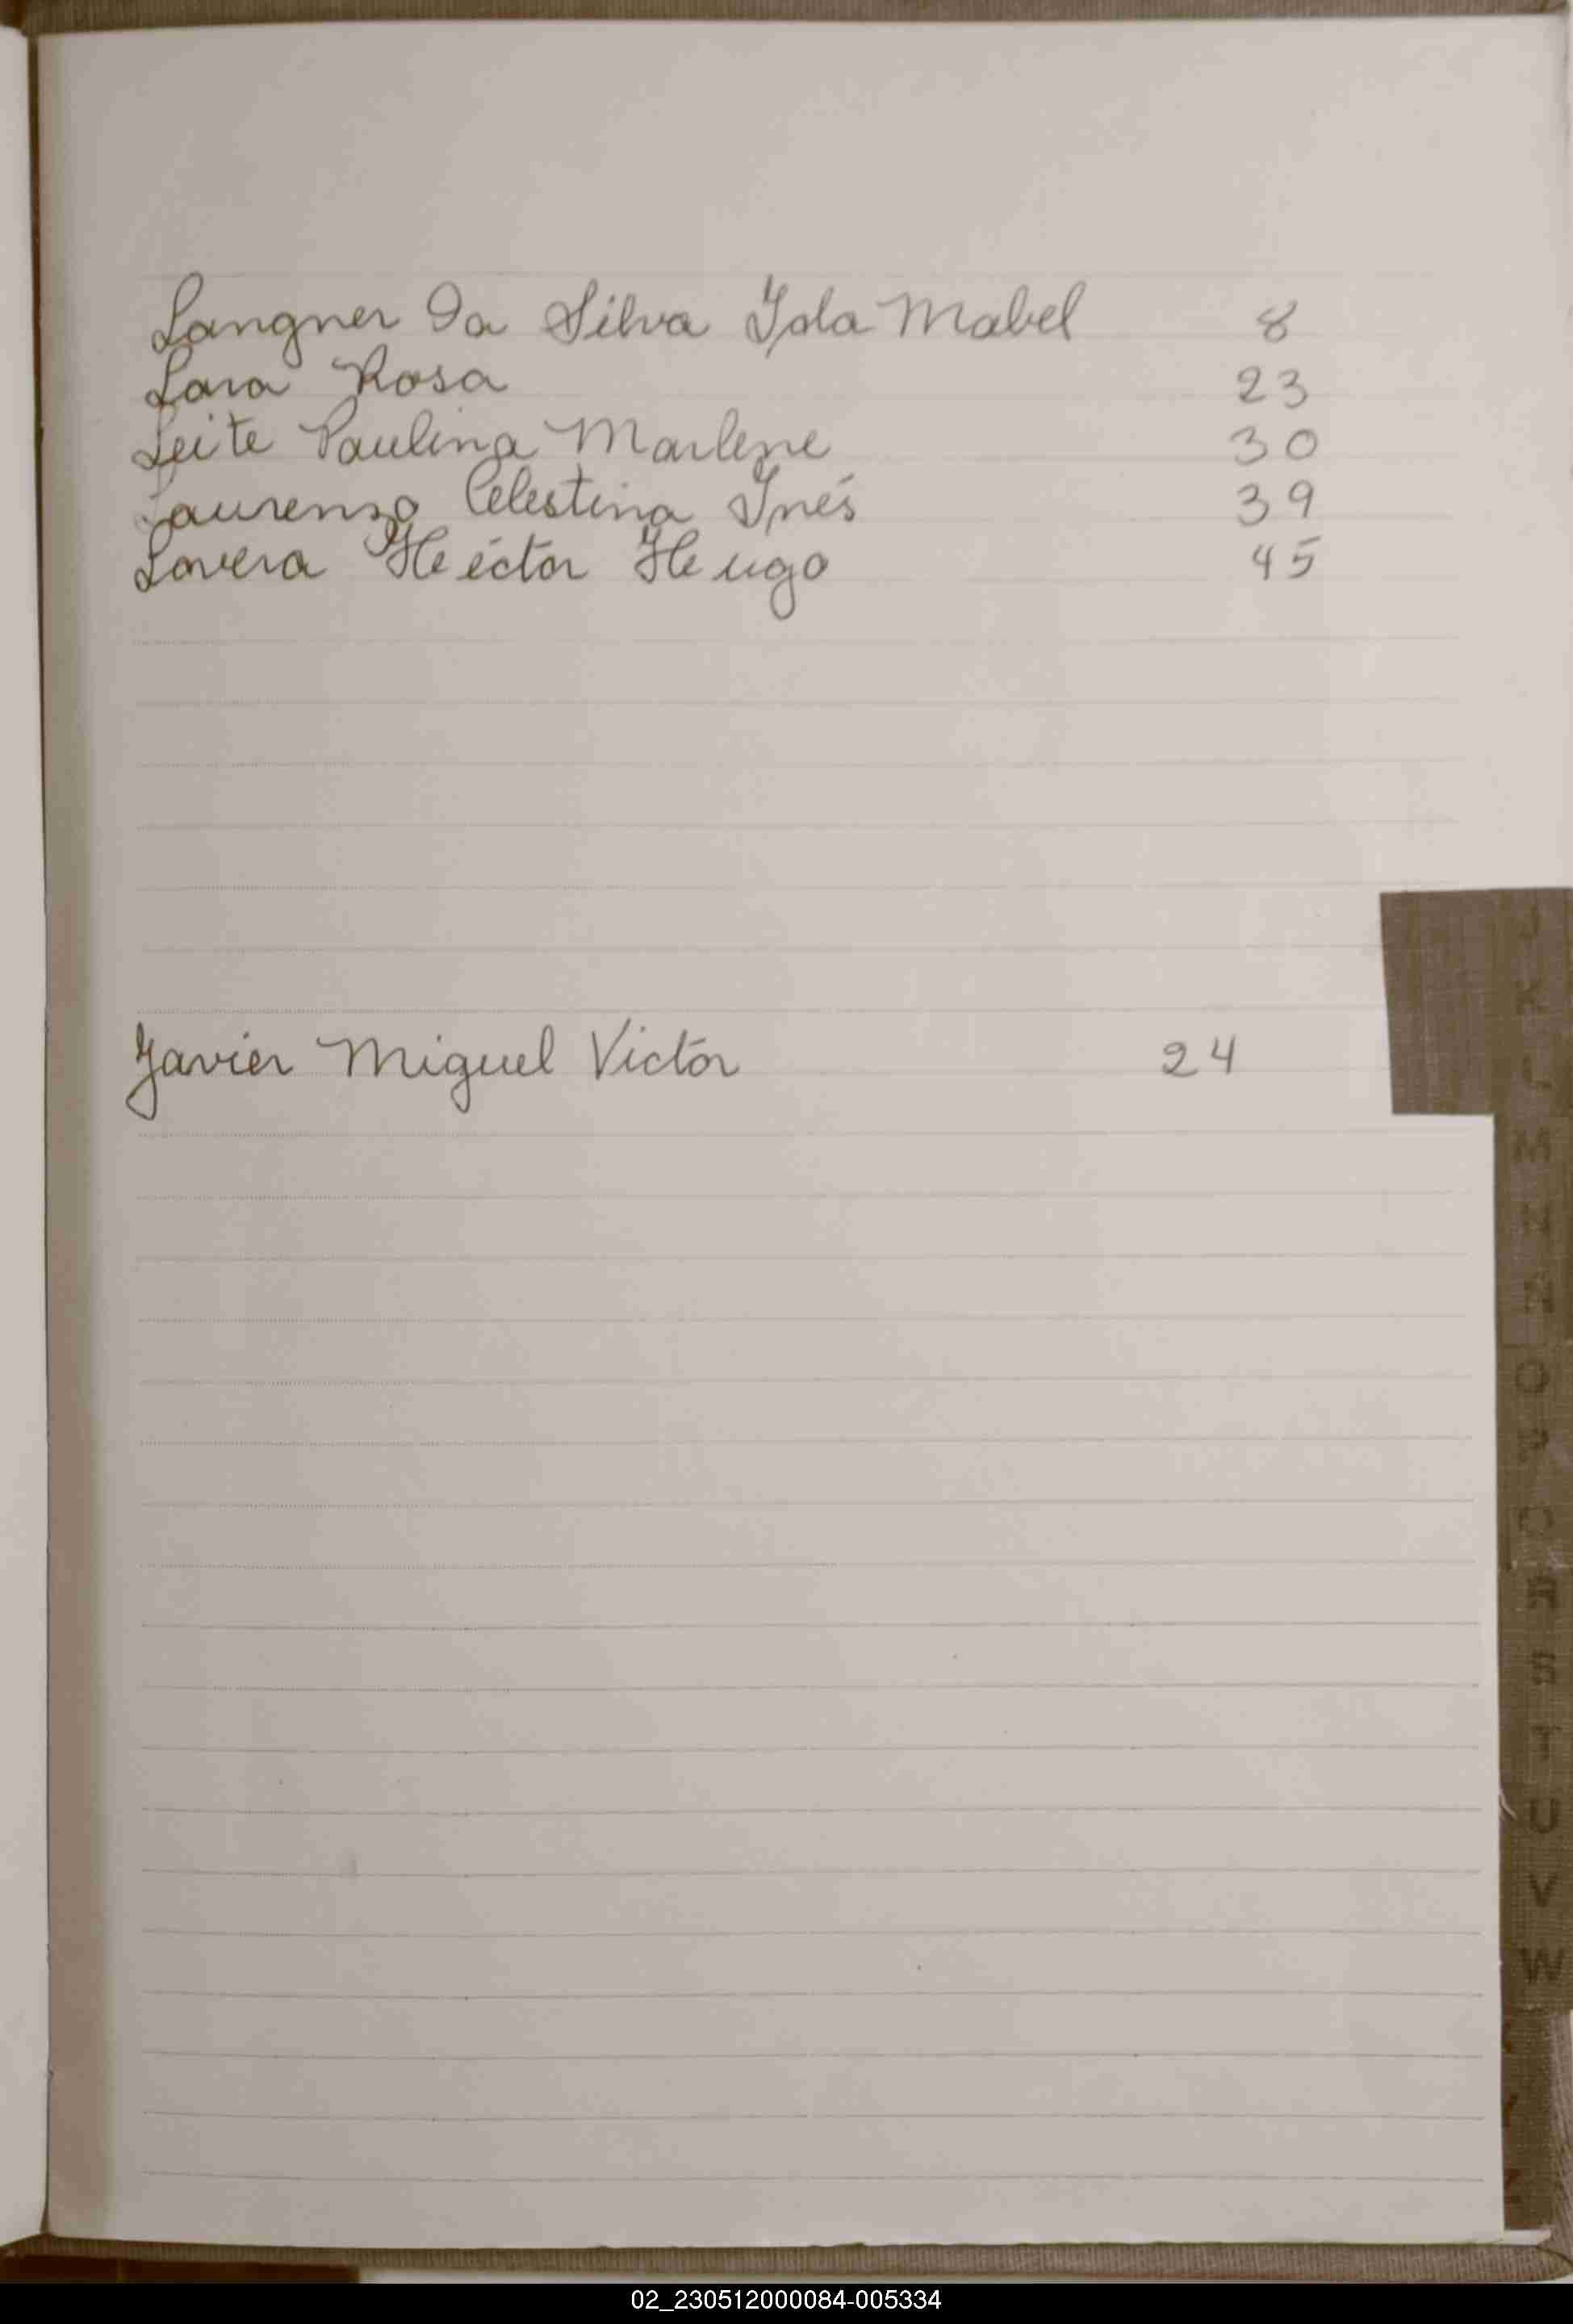 Langner Da Silva Iola Mabel 8
Lara Rosa 23
Leite Paulina Marlene 30
Laurenzo Celestina Inés 39
Lovera Héctor Hugo 45
Javier Miguel Victor 24
J
K
L
M
N
Ñ
O
P
Q
R
S
T
U
V
W
02_230512000084-005334